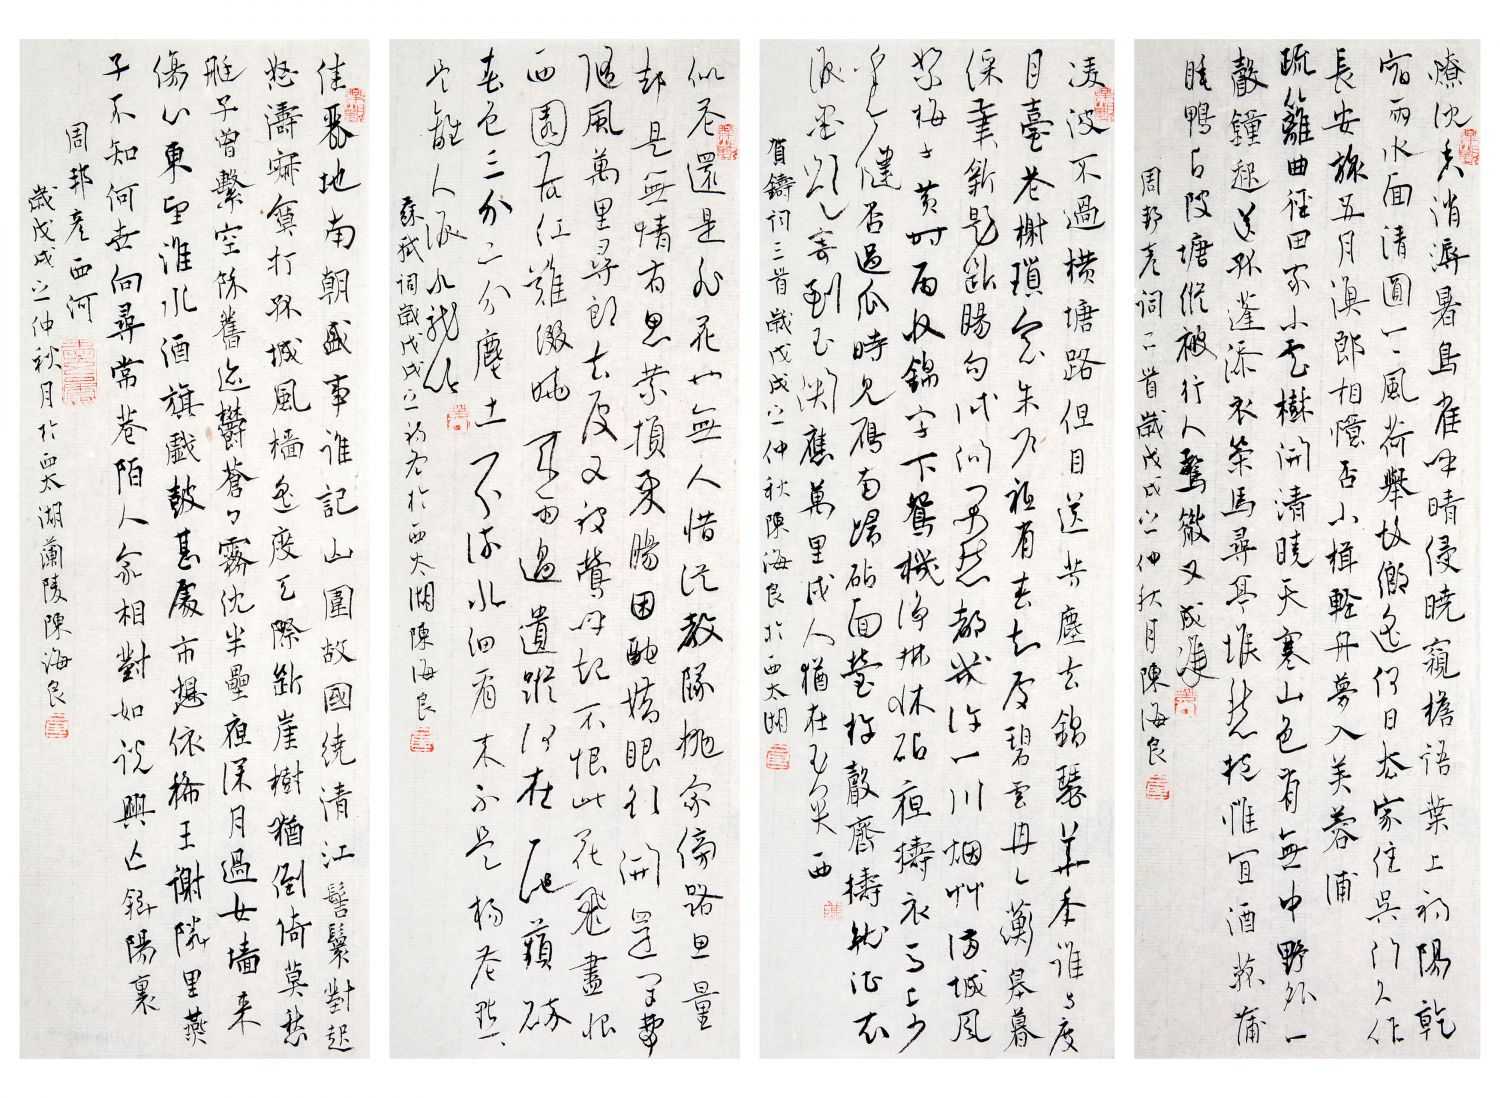 燎沈香消溽暑鳥雀呼晴侵曉窺檐語葉上初陽乾
宿雨水面清圓一一風荷舉故鄉遙何日去家住吳門久作
長安旅五月漁郎相憶否小楫輕舟夢入芙蓉浦
疏籬曲徑田家小雲樹開清曉天寒山色有無中野外一
聲鐘起送孤蓬添衣策馬尋亭堠愁抱惟宜酒菰蒲
睡鴨占陂塘縱被行人驚散又成雙
周邦彥詞二首歲戊戌之仲秋月陳海良
凌波不過橫塘路但目送芳塵去錦瑟華年誰與度
月臺花榭瑣窗朱戶祗有春知處碧雲冉冉蘅皋暮
綵筆新題斷腸句試問閒愁都幾許一川烟艸滿城風
絮梅子黃時雨收錦字下鴛機淨拂牀砧夜擣衣馬上少
年今健否過瓜時見雁南歸砧面瑩杵聲齊擣就征衣
淚墨題寄到玉關應萬里戍人猶在玉關西
賀鑄詞三首歲戊戌之仲秋陳海良於西太湖
似花還是非花也無人惜從教墜拋家傍路思量
却是無情有思縈損柔腸困酣嬌眼欲開還閉夢
隨風萬里尋郎去處又被鶯呼起不恨此花飛盡恨
西園落紅難綴曉來雨過遺蹤何在一池蘋碎
春色三分二分塵土一分流水細看來不是楊花點點
是離人淚水龍吟
蘇軾詞歲戊戌之初冬於西太湖陳海良
佳麗地南朝盛事誰記山圍故國繞清江髻鬟對起
怒濤寂寞打孤城風檣遙度天際斷崖樹猶倒倚莫愁
艇子曾繫空餘舊迹鬱蒼蒼霧沈半壘夜深月過女墻來
傷心東望淮水酒旗戲鼓甚處市想依稀王謝隣里燕
子不知何世向尋常巷陌人家相對如說興亡斜陽裏
周邦彥西河
歲戊戌之仲秋月於西太湖蘭陵陳海良